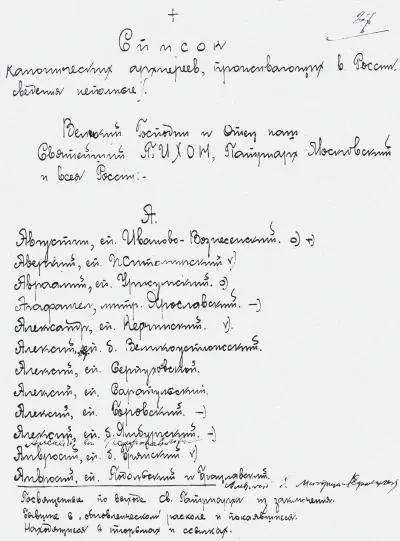 Список
канонических архиереев, проживающих в России.
сведения неполные).
Великий Господин и Отец наш
Святейший ТИХОН, Патриарх Московский
и всея России:-
А.
Августин, еп. Иваново-Вознесенский. о) +)
Аверкий, еп. Житомирский v)
Авраамий, еп. Уржумский. о)
Агафангел, митр. Ярославский. –)
Александр, еп. v).
Алексий, еп. б. Великоустюжский.
Алексий, еп. Серпуховской.
Алексий, еп. Сарапульский.
Алексий, еп. Боровский. –)
Алексий, еп. б. Ямбургский. –)
Амвросий, еп. б. Брянский v)
Амвросий, еп. Подольский и Брацлавский.
Посвященные по выходе Св. Патриарха из заключения.
Бывшие в обновленческом расколе и покаявшиеся.
Находящиеся в тюрьмах и ссылках.